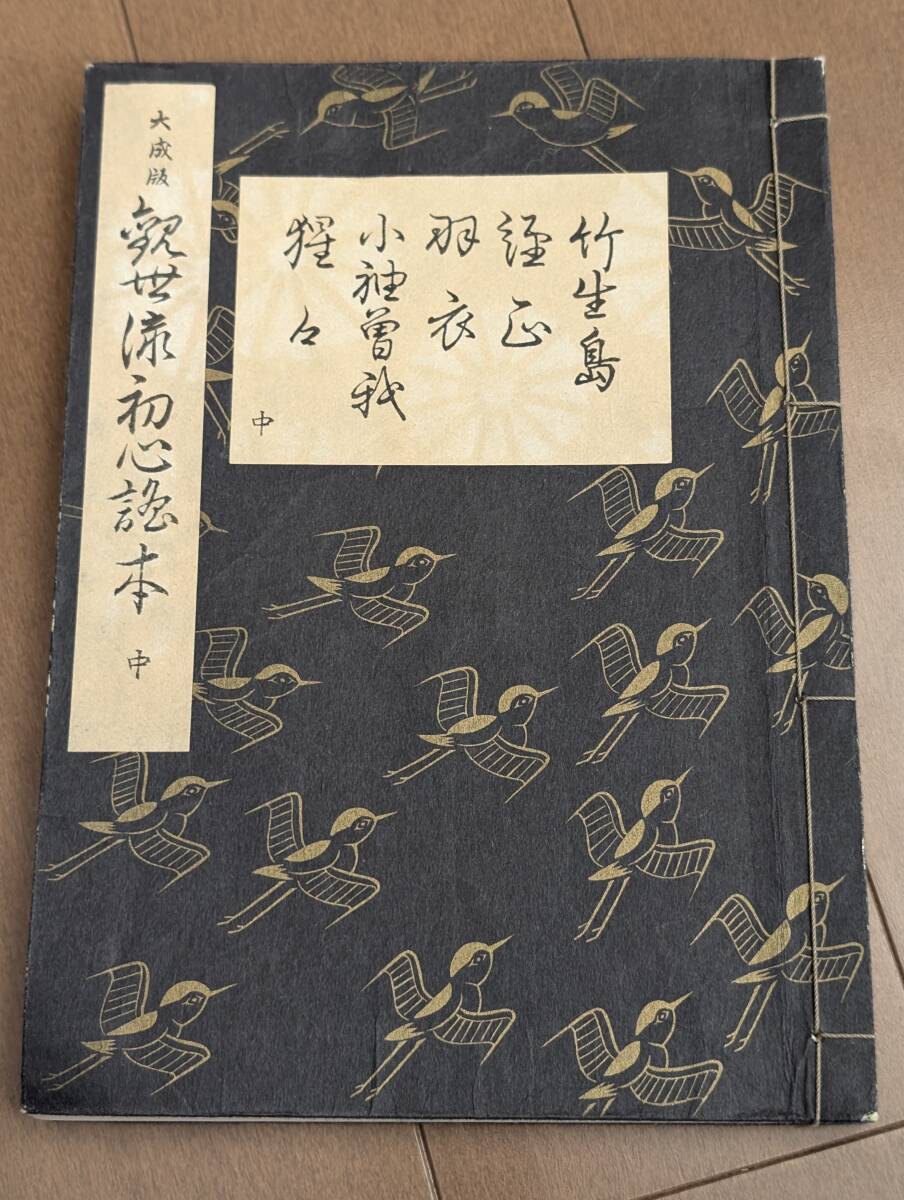 大成版
觀世流初心謠本 中
竹生島
經正
羽衣
小袖曽我
猩々
中